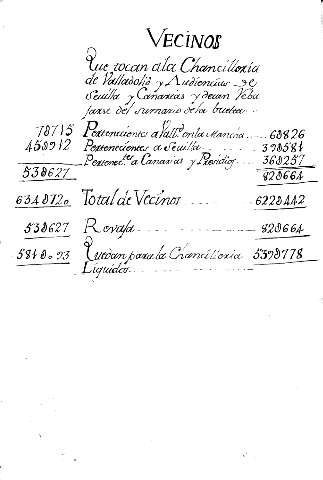 VECINOS
Que tocan ala Chancilleria
de Valladolid y Audiencias de
Sevilla y Canarias y devan Reba
jarse del sumario de la buelta
78715 Pertenecientes a Vallid. en la Mancha 60826
458912 Pertenecientes a Sevilla 398581
Pertenec.tes a Canarias y Presidios 368257
538627 828664
634872 Total de Vecinos 6228442
538627 Revaja 828664
Quedan para la Chancilleria 5398778
Liquidos